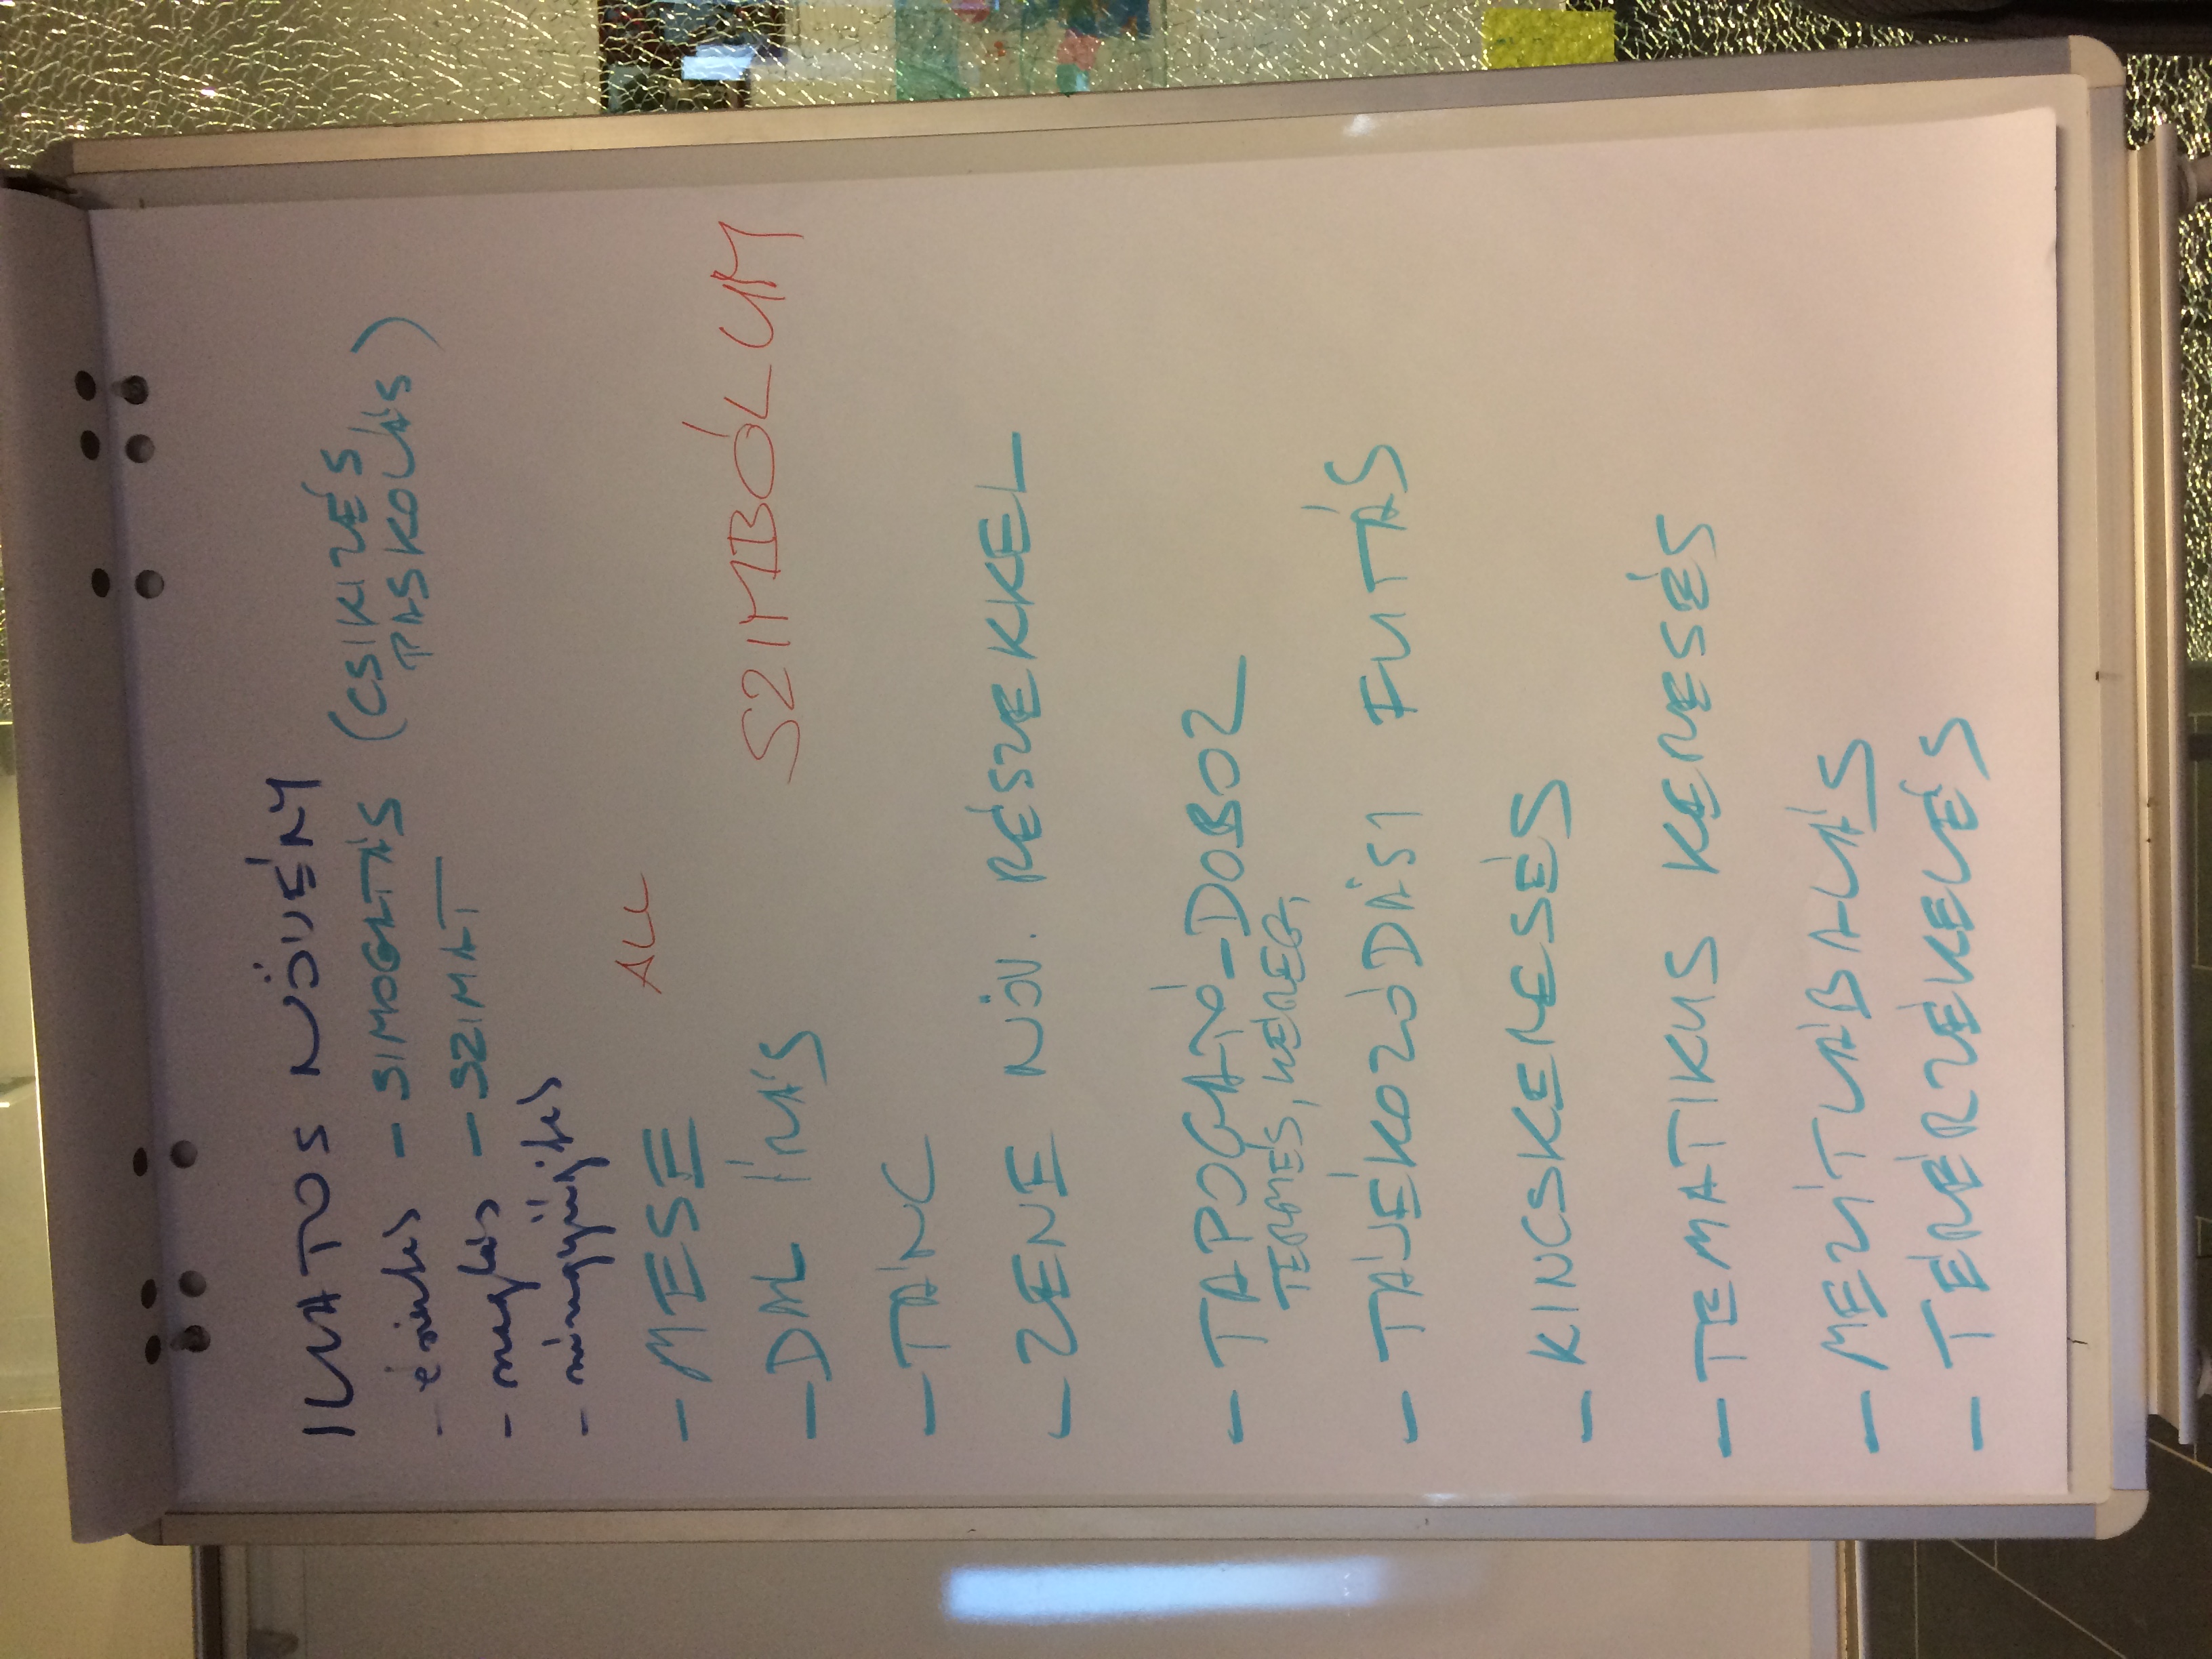 ILLATOS NÖVÉNY
- érintés - SIMOGATÁS (CSIKIZÉS
PASKOLÁS)
- szaglás - SZIMAT
-
ALL
- MESE
- DAL ÍRÁS
SZIMBÓLUM
- TÁNC
- ZENE NÖV. RÉSZEKKEL
- TAPOGATÓ-DOBOZ
TERMÉS, KÉREG,
- TÁJÉKOZÓDÁSI FUTÁS
- KINCSKERESÉS
- TEMATIKUS KERESÉS
- MEZÍTLÁBALÁS
- TÉRÉRZÉKELÉS